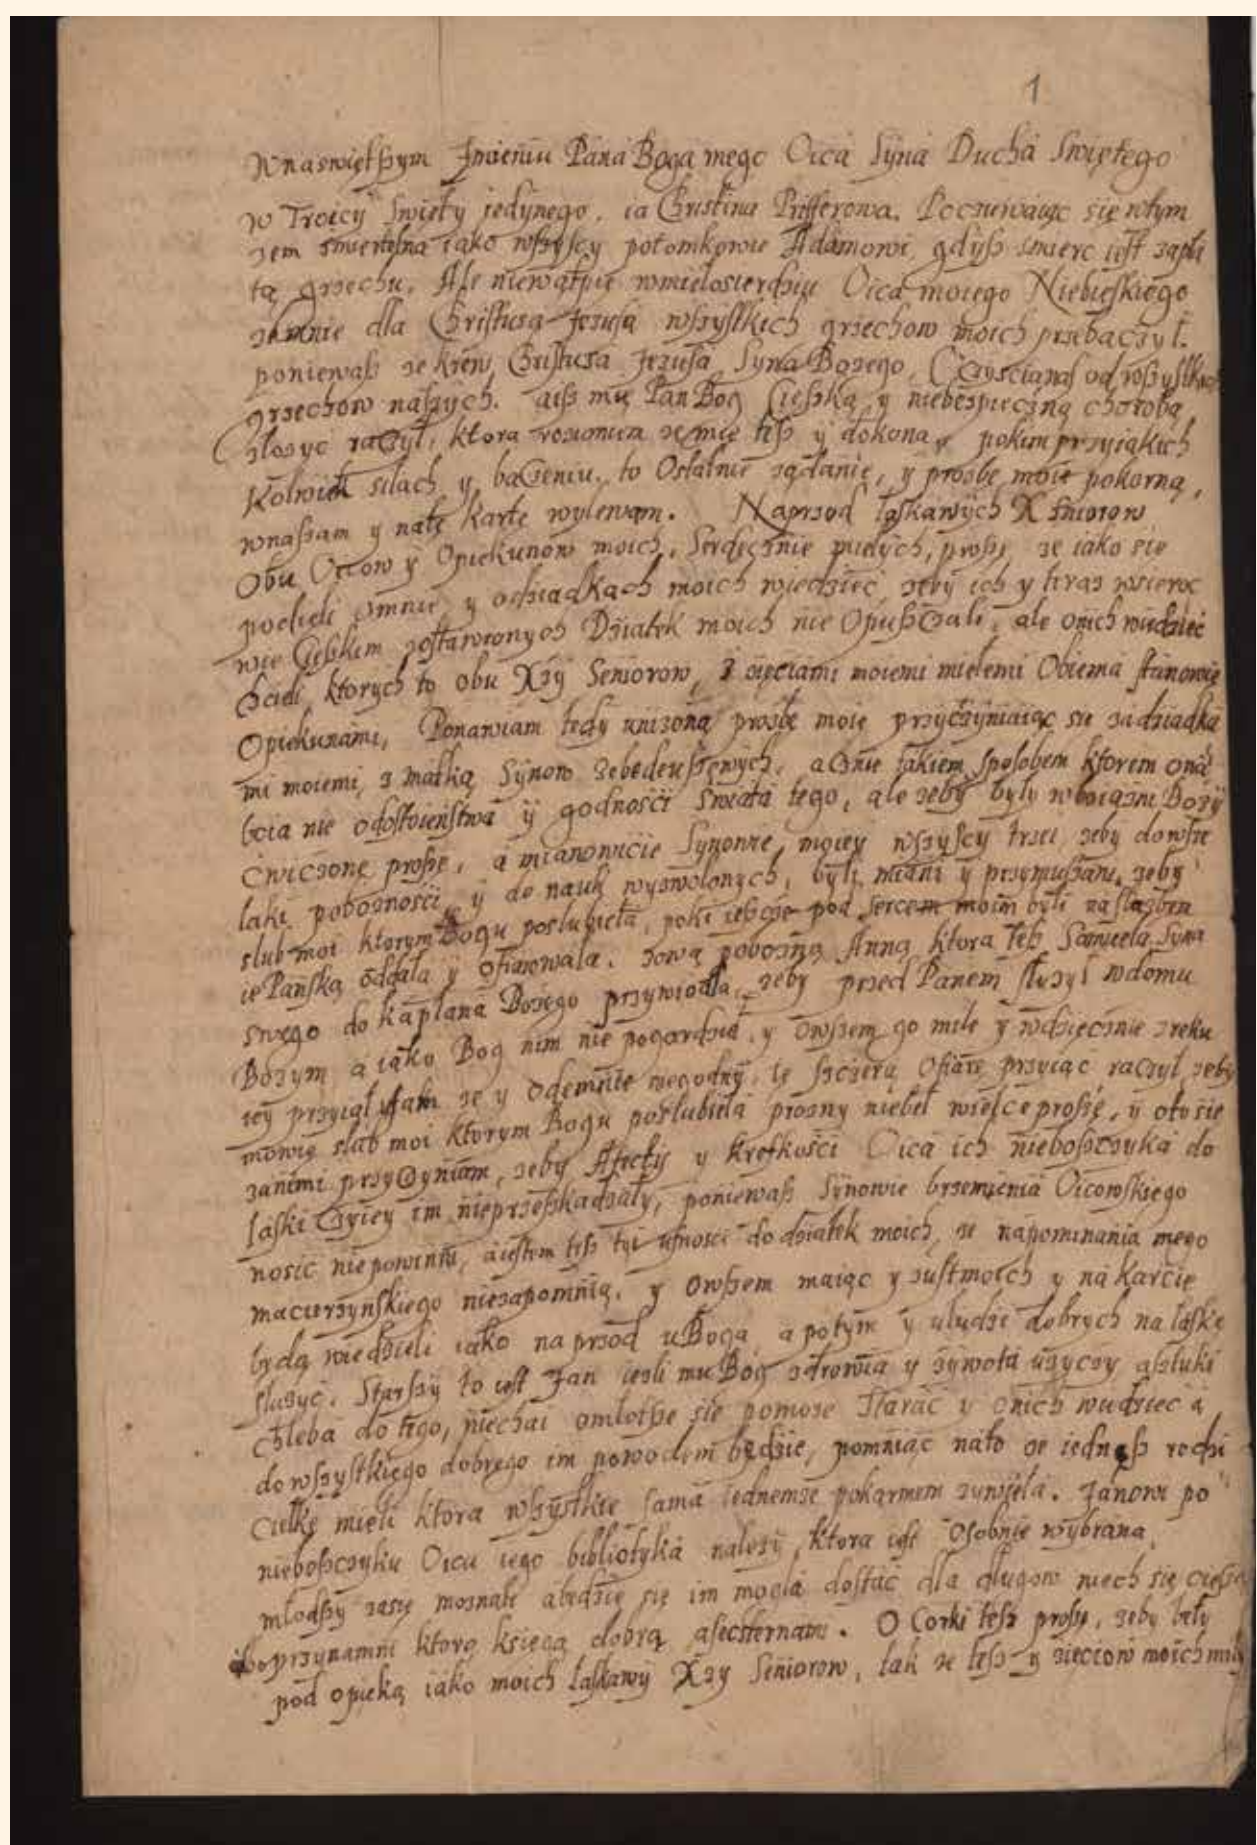 1
W naswiętszym Imieniu Pana Boga mego Oica Syna Ducha Swiętego
w Troicy swięty jedynego, ia Christina Pűsserowa. Poczuwaiąc się w tym
zem smiertelna iako wszyscy potomkowie Adamowi, gdysz smierc iest zapła
tą grzechu. Ale niewątpię w miełosierdziu Oica moiego Niebieskiego
ze mnie dla Christusa Jezusa wszystkich grzechow moich przebaczył.
poniewasz ze krew Christusa Jezusa Syna Bozego, Czyscianas od wszystkich
grzechow naszych. aisz mię Pan Bog Cieszką y niebezpieczną chorobą
złozyc raczył, ktora rozumiem ze mię tesz y dokona, pokim przy iakich
Kolwiek siłach y baczeniu, to Ostatnie ządanie, y prozbę moię pokorną,
wnaszam y na tę Kartę wylewam. Naprzod łaskawych X Seniorow
Obu Oicow y Opiekunow moich, Serdecznie miełych, proszę, ze iako się
podieli omnie y o dziadkach moich wiedziec, zeby ich y teras w sieroc
wie Cieszkim zostawionych Dziatek moich nie Opuszczali, ale onich wiedziec
Chcieli, ktorych to obu Xzy Seniorow, z zięciami moiemi miełemi Obiema stanowię
Opiekunami, Ponawiam tedy unizoną prozbę moię przyczyniaiąc się za dziadka
mi moiemi, z matką Synow Zebedeuszęwych, acznie takiem sposobem ktorem ona
bcia nie o dostoienstwa y godnosci swiata tego, ale zeby były w boiazni Bozy
cwiczone proszę, a mianowicie Synowie moiey wszyscy trzei zeby do wsze
laki poboznosci y do nauk wyzwolonych, byli miani y przymuszani, zeby
slub moi ktorym Bogu poslubieła, poki iescze pod sercem moim byli na słuzbę
ie Panską oddała y ofiarowała. zową pobozną Anną ktora tesz Samuela Syna
swego do kapłana Bozego przywiodła, zeby przed Panem słuzył w domu
Bozym a iako Bog nim nie pogardził, y owszem go mile y wdzięcznie z reku
iey przyiął ufam ze y odemnie niegodny, tę szczerą Ofiarę przyiąc raczył, zeby
mowię slub moi ktorym Bogu poslubieła prozny niebeł wielce proszę, y oto się
zanimi przyczyniam, zeby Afecty y kretkosci Oica ich nieboszczyka do
łaski czyiey im nieprzeszkadzały, poniewasz Synowie brzemienia Oicowskiego
nosic niepowinni, aiestem tesz tyi ufnosci do dziatek moich, ze napominania mego
macierzynskiego niezapomnią. y Owszem maiąc y z ust moich y na karcie
będą wiedzieli iako na przod u Boga a potym y u ludzi dobrych na łaskę
słuzyc. Starszy to iest Jan iezli mu Bog zdrowia y zywota uzyczy asztuki
chleba do tego, niechai o młotsze się pomoze starac y onich wiedziec a
do wszystkiego dobrego im powodem będzie, pomniąc nato ze iednąsz rodzi
cielkę mieli ktora wszystkie sama iednemze pokarmem zywieła. Janowi po
nieboszczyku Oicu iego bibliotyka nalezi, ktora iest osobnie wybrana,
młodszy zasię moznali abedzie się im mogla dostac dla długow niech się ciesza
przynamni ktorą księgą dobrą a secsternami. O Corki tesz proszę, zeby beły
pod opieką iako moich łaskawy Xzy Seniorow, tak ze tesz y zieciow moich miły